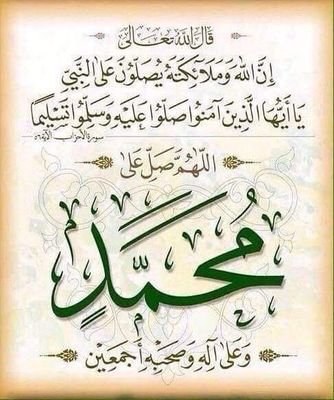 قَالَ اللّٰه تَعَالَى
إِنَّ اللّٰهَ وَمَلَائِكَتَهُ يُصَلُّونَ عَلَى النَّبِيِّ
يَا أَيُّهَا الَّذِينَ آمَنُوا صَلُّوا عَلَيْهِ وَسَلِّمُوا تَسْلِيمًا
سورة الأحزاب الآية ٥٦
اللّٰهُمَّ صَلِّ عَلَى
مُحَمَّدٍ
وَعَلَى آلِهِ وَصَحْبِهِ أَجْمَعِين